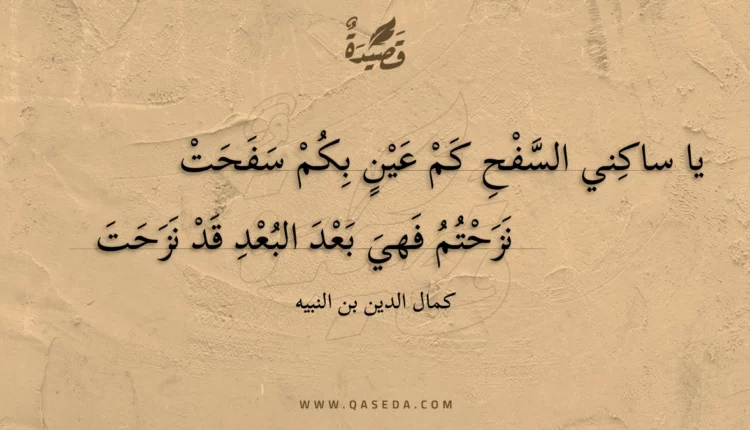 قَصِيدَةٌ
يا ساكِني السَّفْحِ كَمْ عَيْنٍ بِكُمْ سَفَحَتْ
نَزَحْتُمُ فَهيَ بَعْدَ البُعْدِ قَدْ نَزَحَتَ
كمال الدين بن النبيه
WWW.QASEDA.COM